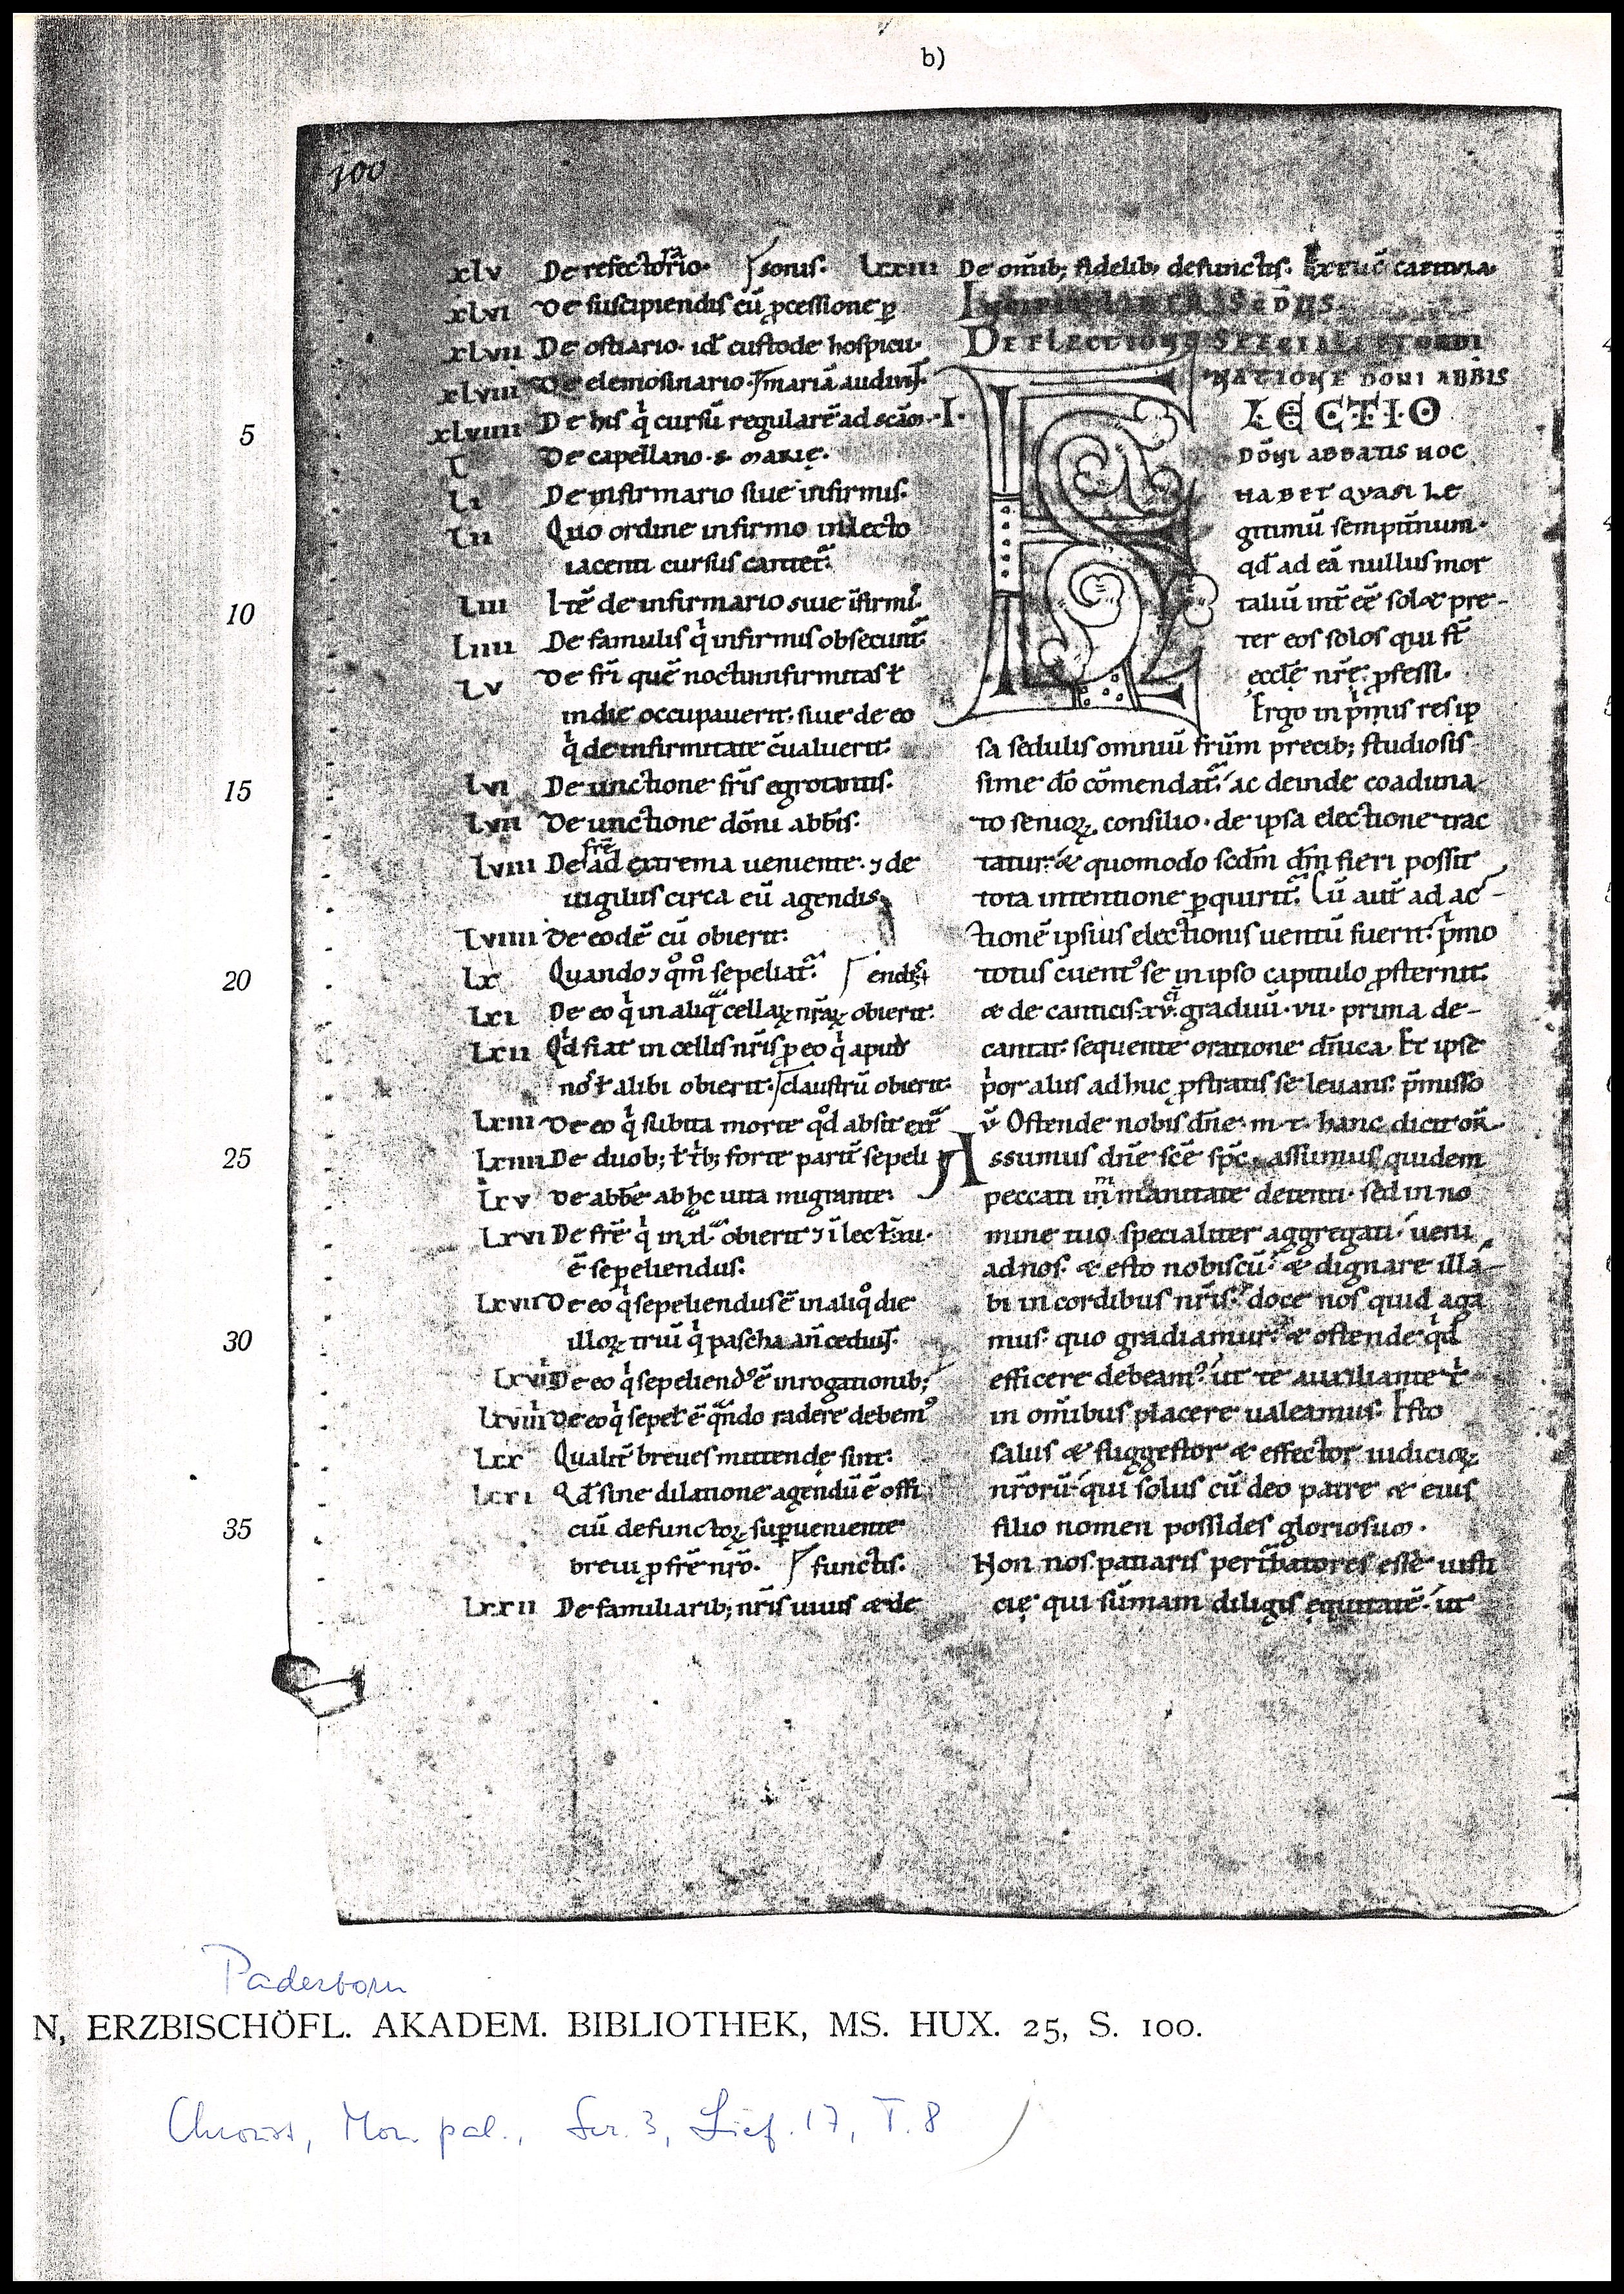 b)
100
xlv De refectorio. sonis.
xlvi De suscipiendis cū ꝓcessione ꝑ
xlvii De ostiario. id custode hospicii.
xlviii De elemosinario. mariā audiunt.
5
xlviiii De his q̍ cursū regularē ad scām.
L De capellano. s. marię.
Li De infirmario siue infirmis.
Lii Quo ordine infirmo in lecto
iacenti cursus cantet᷑.
10
Liii Itē de infirmario siue īfirmis.
Liiii De famulis q̍ infirmis obsecunt᷑.
Lv De fr̄i quē noctu infirmitas ł
in die occupauerit. siue de eo
q̍ de infirmitate cu̅aluerit.
15
Lvi De unctione fr̄is egrotantis.
Lvii De unctione dōni abb̄is.
Lviii De fr̄e ad extrema ueniente. ⁊ de
uigiliis circa eū agendis
Lviiii De eodē cū obierit.
20
Lx Quando ⁊ qm̊ sepeliat᷑. endis
Lxi De eo q̍ in aliq̄ cellaꝝ nr̄aꝝ obierit.
Lxii Qd fiat in cellis nr̄is ꝓ eo q̍ apud
nos ł alibi obierit. claustrū obierit.
Lxiii De eo q̍ subita morte qd absit ext᷑
25
Lxiiii De duob; ł trib; forte parit̄ sepeli
Lxv De abb̄e ab hc uita migrante.
Lxvi De fr̄e q̍ in obierit ⁊ ī lect
ē sepeliendus.
Lxvii De eo q̍ sepeliendus ē in aliq̊ die
30
illoꝝ triū q̍ pascha an̄cedunt.
De eo q̍ sepeliendꝰ ē in rogationib;
De eo q̍ sepel ē qn̄do radere debemꝰ
Lxx Qualit̄ breues mittende sint.
Lxxi Qd sine dilatione agendū ē offi
35
ciū defunctoꝝ superueniente
breui ꝓ fr̄e nr̄o. functis.
Lxxii De familiarib; nr̄is uiuis æ de
Lxxiii De om̄ib; fidelib; defunctis.
De electione
natione doni abbis
I.
LECTIO
dōni abbatis hoc
habet quasi le
gitimū sempit̄num.
qd ad eā nullus mor
taliū int̄ eē solæ pre-
ter eos solos qui st̄
eccl̄ę nr̄ę ꝓfessi.
Ergo in p̍mis res ip
sa sedulis omniū fr̄um precib; studiosis
sime dō cōmendat᷑. ac deinde coaduna
to senioꝝ consilio. de ipsa electione trac
tatur. æ quomodo scdm dm̄ fieri possit
tota intentione ꝑquirit᷑. Cū aut̄ ad ac-
tionē ipsius electionis uentū fuerit. p̍mo
totus cuentꝰ se in ipso capitulo ꝓsternit.
æ de canticis xv graduū. vii. prima de-
cantat. sequente oratione dn̄ica. Et ipse
p̍or aliis adhuc ꝓstratis se leuans. p̄misso
v̄ Ostende nobis dn̄e. m. t. hanc dicit or̄.
Assumus dn̄e scē spc̄. assumus quidem
peccati inmanitate detenti. sed in no
mine tuo specialiter aggregati. ueni
ad nos. æ esto nobiscū. æ dignare illa-
bi in cordibus nr̄is. doce nos quid aga
mus. quo gradiamur. æ ostende qd
efficere debeamꝰ. ut te auxiliante t̍
in om̄ibus placere ualeamus. Esto
salus æ suggestor æ effector iudicioꝝ
nr̄orū qui solus cū deo patre æ eius
filio nomen possides gloriosum.
Non nos patiaris pert̄batores esse iusti
cię qui sūmam diligis equitatē. ut
Paderborn
N, ERZBISCHÖFL. AKADEM. BIBLIOTHEK, MS. HUX. 25, S. 100.
Chroust, Mon. pal., Ser. 3, Lief. 17, T. 8